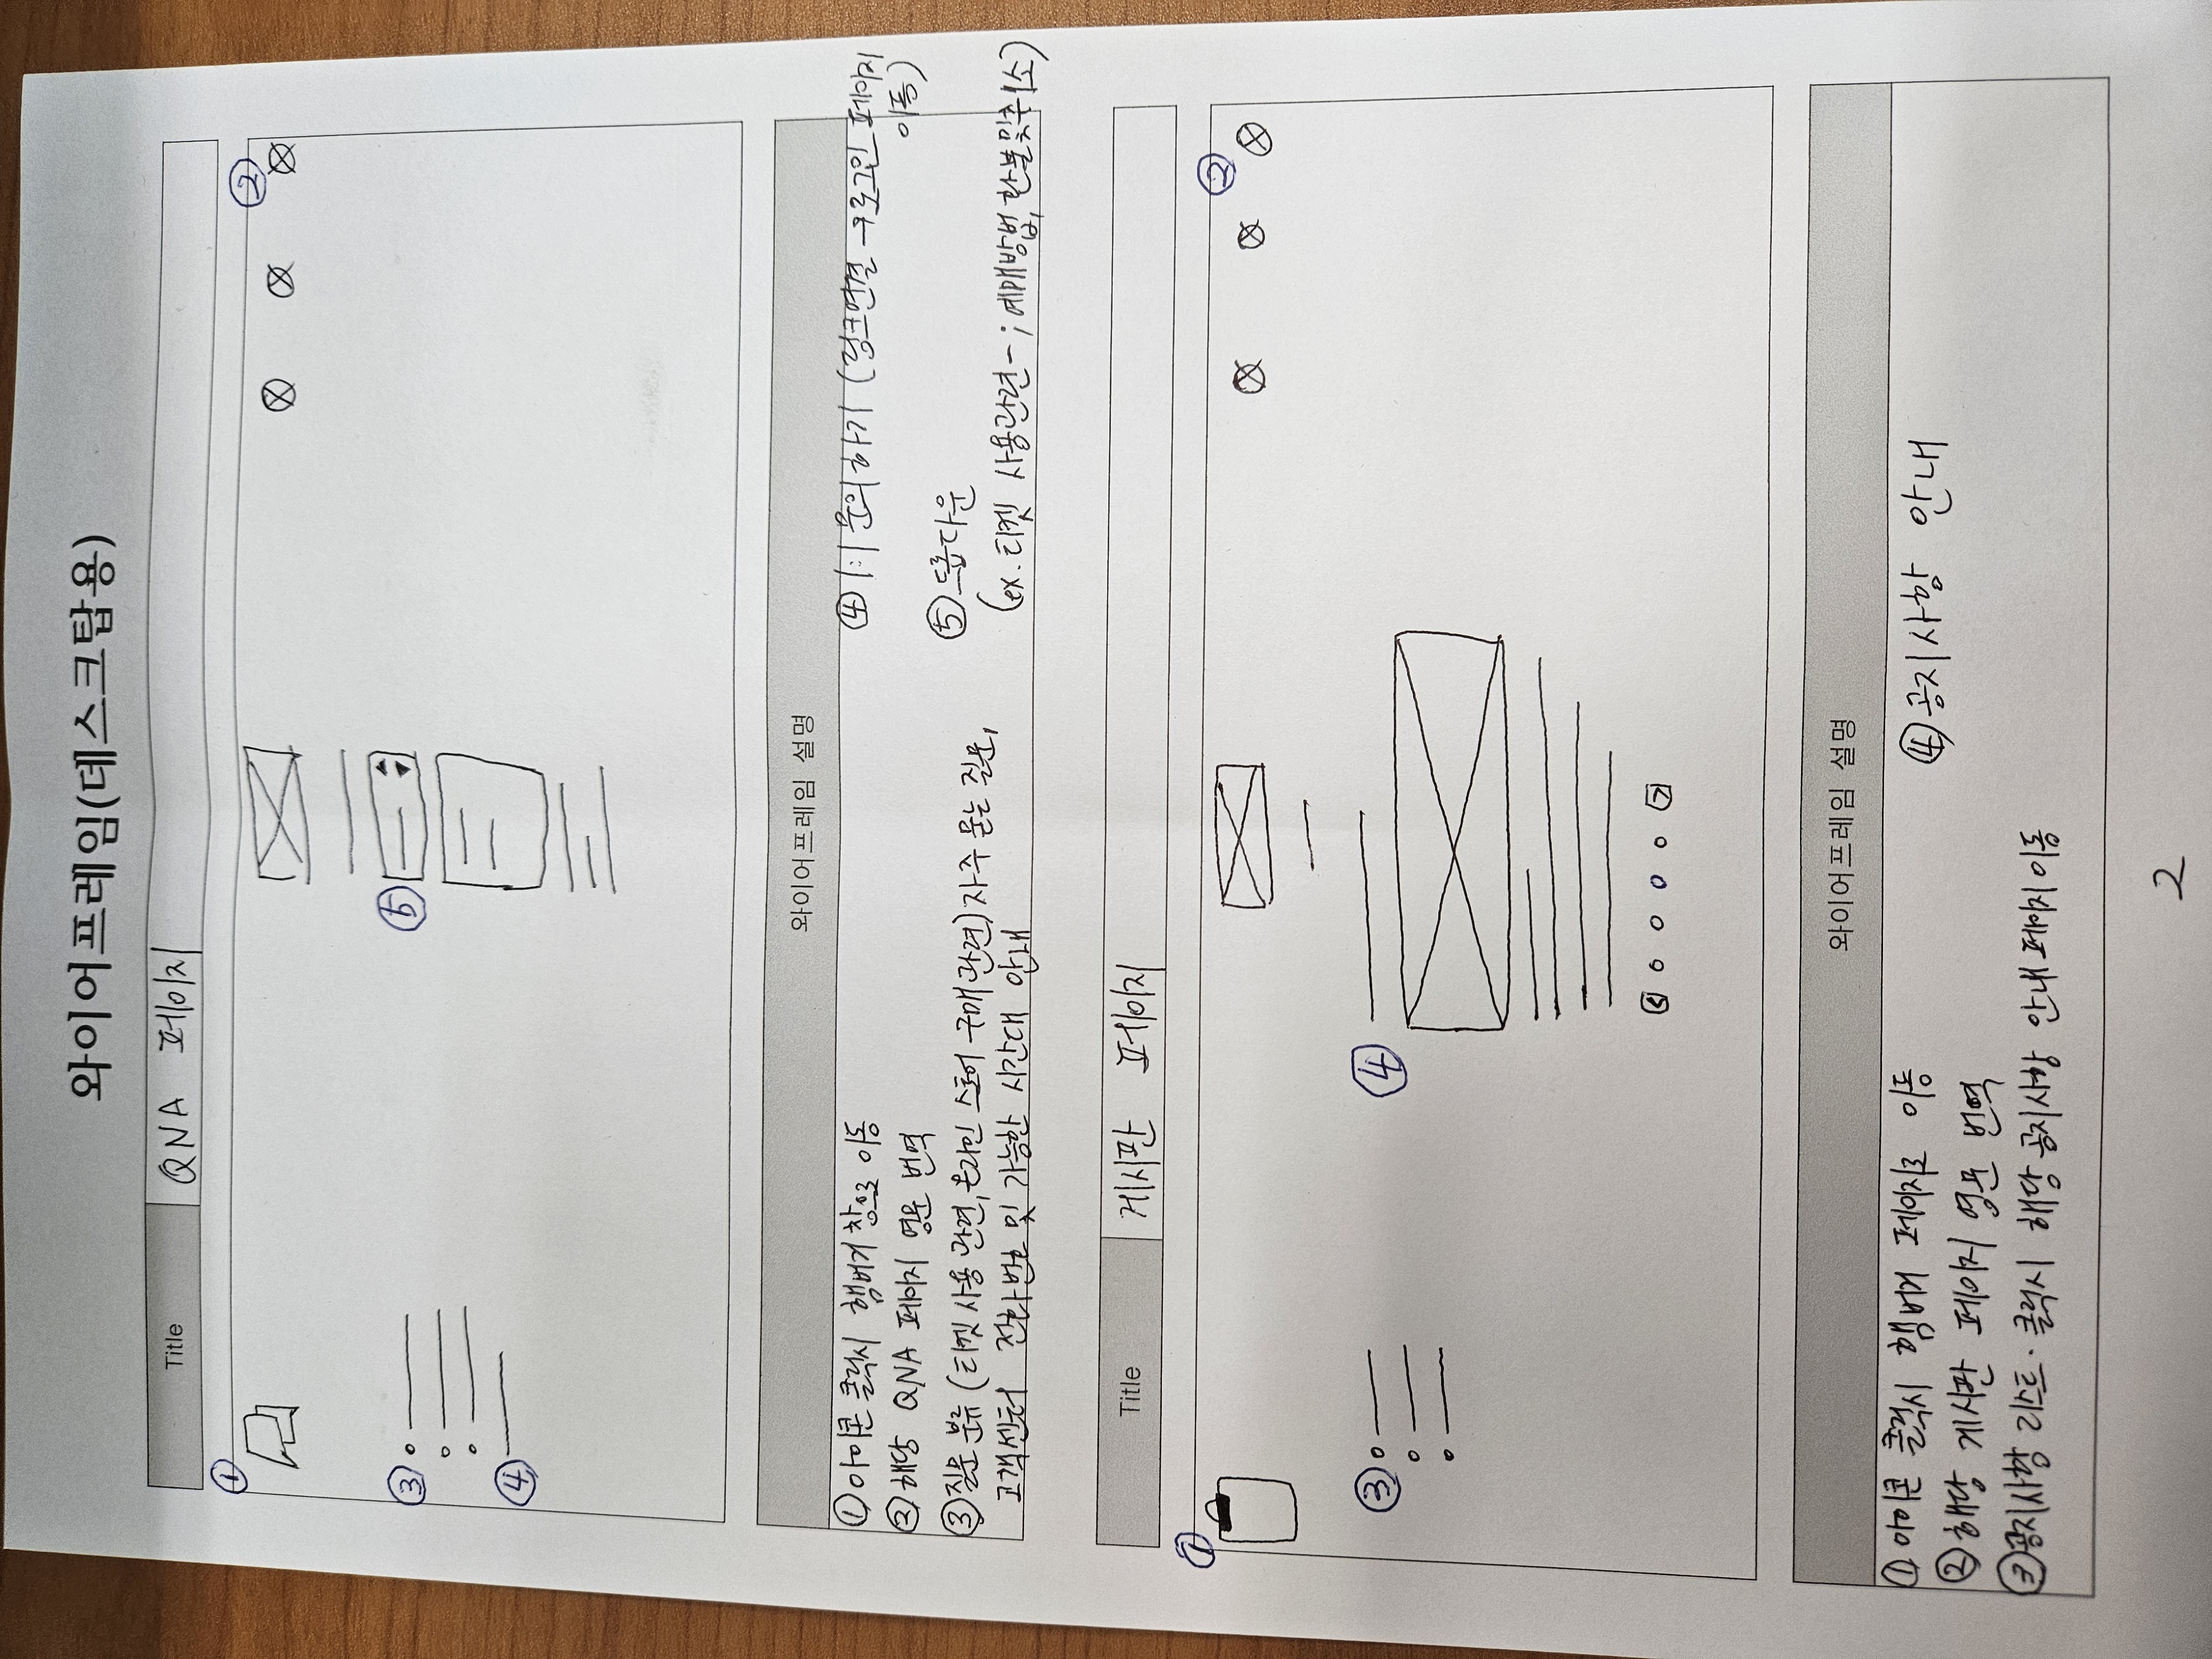 와이어프레임(데스크탑용)
Title
QNA 페이지
①
②
③
⑤
④
와이어프레임 설명
① 아이콘 클릭시 햄버거 창으로 이동
② 해당 QNA 페이지 영문 번역
③ 질문 분류 (티켓 사용 관련, 온라인 스토어 구매 관련) 자주 묻는 질문,
고객센터 전화번호 및 가능한 시간대 안내
④ 1:1 문의하기 (링크연결 → 로그인 페이지
이동)
⑤ 드롭다운
(ex. 티켓 사용관련 - ; 예매방법, 환불및취소)
Title
게시판 페이지
①
②
③
④
와이어프레임 설명
① 아이콘 클릭시 햄버거 페이지로 이동
② 해당 게시판 페이지 영문 번역
③ 공지사항 리스트. 클릭시 해당 공지사항 안내 페이지 이동
④ 공지사항 안내
2